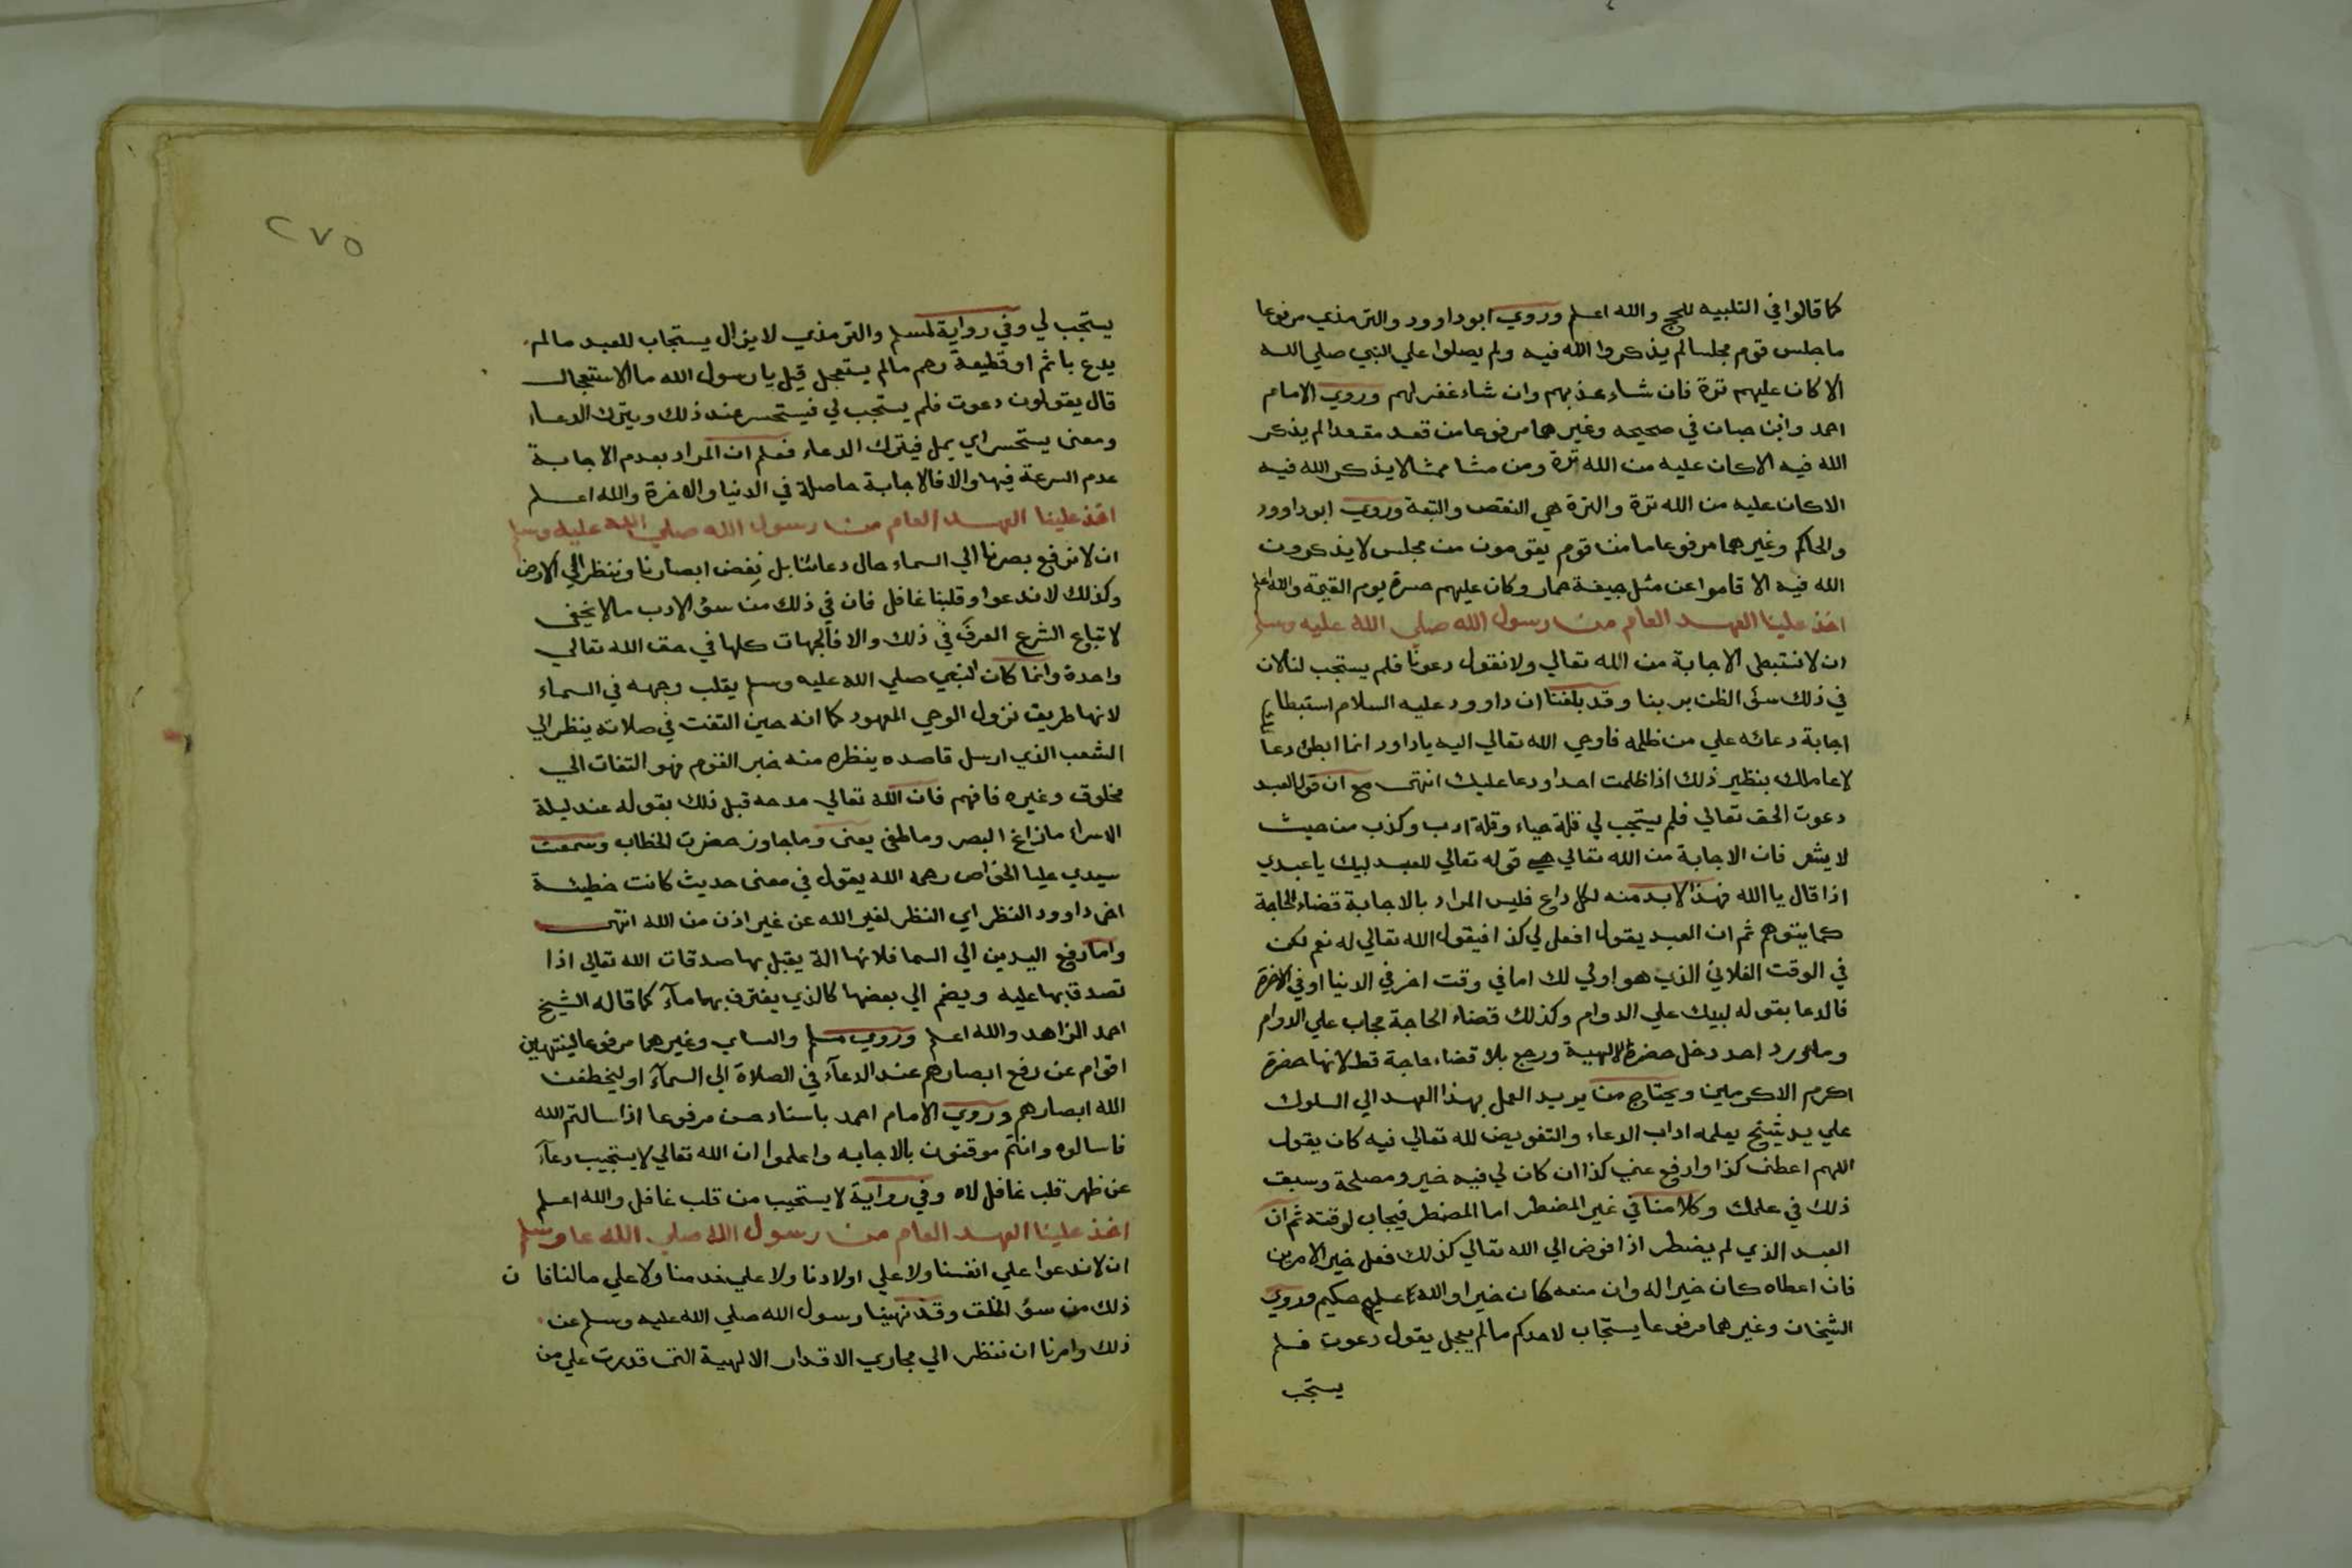 كما قالوا في التلبيه للحج والله اعلم وروي ابو داوود والترمذي مرفوعا
ما جلس قوم مجلسا لم يذكروا الله فيه ولم يصلوا علي النبي صلي الله
الا كان عليهم ترة فان شاء عذبهم وان شاء غفر لهم وروي الامام
احمد وابن حبان في صحيحه وغيرهما مرفوعا من قعد مقعدا لم يذكر
الله فيه الا كان عليه من الله ترة ومن مشا ممشا لا يذكر الله فيه
الا كان عليه من الله ترة والترة هي النقص والتبعة وروي ابو داوود
والحاكم وغيرهما مرفوعا ما من قوم يقومون من مجلس لا يذكرون
الله فيه الا قاموا عن مثل جيفة حمار وكان عليهم حسرة يوم القيمة والله اعلم
اخذ علينا العهد العام من رسول الله صلي الله عليه وسلم
ان لا نستبطي الاجابة من الله تعالي ولا نقول دعونا فلم يستجب لنا لان
في ذلك سؤ الظن بربنا وقد بلغنا ان داوود عليه السلام استبطا
اجابة دعائه علي من ظلمه فاوحي الله تعالي اليه يا داود انما ابطئ دعا
لاعاملك بنظير ذلك اذا ظلمت احدا ودعا عليك انتهى مع ان قول العبد
دعوت الحق تعالي فلم يستجب لي قلة حياء وقلة ادب وكذب من حيث
لا يشعر فان الاجابة من الله تعالي هي قوله تعالي للعبد لبيك يا عبدي
اذا قال يا الله فهذا لا بد منه لكل داع فليس المراد بالاجابة قضاء الحاجة
كما يتوهم ثم ان العبد يقول افعل لي كذا فيقول الله تعالي له نعم لكن
في الوقت الفلاني الذي هو اولي لك اما في وقت اخر في الدنيا او في الاخرة
فالدعا بقوله لبيك علي الدوام وكذلك قضاء الحاجة مجاب علي الدوام
وما ورد احد دخل حضرة الالهية ورجع بلا قضاء حاجة قط لانها حضرة
اكرم الاكرمين ويحتاج من يريد العمل بهذا العهد الي السلوك
علي يد شيخ يعلمه اداب الدعاء والتفويض لله تعالي فيه كان يقول
اللهم اعطني كذا وارفع عني كذا ان كان لي فيه خير ومصلحة وسبق
ذلك في علمك وكلامنا في غير المضطر اما المضطر فيجاب لوقته ثم ان
العبد الذي لم يضطر اذا فوض الي الله تعالي كذلك فعل خير الامرين
فان اعطاه كان خيرا له وان منعه كان خيرا والله عليم حكيم وروي
الشيخان وغيرهما مرفوعا يستجاب لاحدكم ما لم يعجل يقول دعوت فلم
يستجب
٢٧٥
يستجب لي وفي رواية لمسلم والترمذي لا يزال يستجاب للعبد ما لم
يدع باثم او قطيعة رحم ما لم يستعجل قيل يا رسول الله ما الاستعجال
قال يقولون دعوت فلم يستجب لي فيستحسر عند ذلك ويترك الدعاء
ومعنى يستحسر اي يمل فيترك الدعاء فعلم ان المراد بعدم الاجابة
عدم السرعة فيها والا فالاجابة حاصلة في الدنيا والاخرة والله اعلم
اخذ علينا العهد العام من رسول الله صلي الله عليه وسلم
ان لا نرفع بصرنا الي السماء حال دعائنا بل نغض ابصارنا وننظر الي الارض
وكذلك لا ندعوا وقلبنا غافل فان في ذلك من سؤ الادب ما لا يخفى
لاتباع الشرع العرف في ذلك والا فالجهات كلها في حق الله تعالي
واحدة وانما كان النبي صلي الله عليه وسلم يقلب وجهه في السماء
لانها طريق نزول الوحي المعهود كما انه حين التفت في صلاته ينظر الي
الشعب الذي ارسل قاصده ينظره منه خبر القوم فهو التفات الي
مخلوق وغيره فافهم فان الله تعالي مدحه قبل ذلك بقوله عند ليلة
الاسراء ما زاغ البصر وما طغى يعنى وما جاوز حضرت الخطاب وسمعت
سيدي عليا الخواص رحمه الله يقول في معنى حديث كانت خطيئة
اخي داوود النظر اي النظر لغير الله عن غير اذن من الله انتهى
واما رفع اليدين الي السما فلانها الة يقبل بها صدقات الله تعالي اذا
تصدق بها عليه ويضم الي بعضها كالذي يغترف بهما مآء كما قاله الشيخ
احمد الزاهد والله اعلم وروي مسلم والنساي وغيرهما مرفوعا لينتهين
اقوام عن رفع ابصارهم عند الدعآء في الصلاة الي السمآء او ليخطفن
الله ابصارهم وروي الامام احمد باسناد حسن مرفوعا اذا سالتم الله
فاسالوه وانتم موقنون بالاجابه واعلموا ان الله تعالي لا يستجيب دعآء
عن ظهر قلب غافل لاه وفي رواية لا يستجيب من قلب غافل والله اعلم
اخذ علينا العهد العام من رسول الله صلي الله عا وسلم
ان لا ندعوا علي انفسنا ولا علي اولادنا ولا علي خدمنا ولا علي مالنا فا ن
ذلك من سؤ الخلق وقد نهينا رسول الله صلي الله عليه وسلم عن
ذلك وامرنا ان ننظر الي مجاري الاقدار الالهية التى قدرت علي من